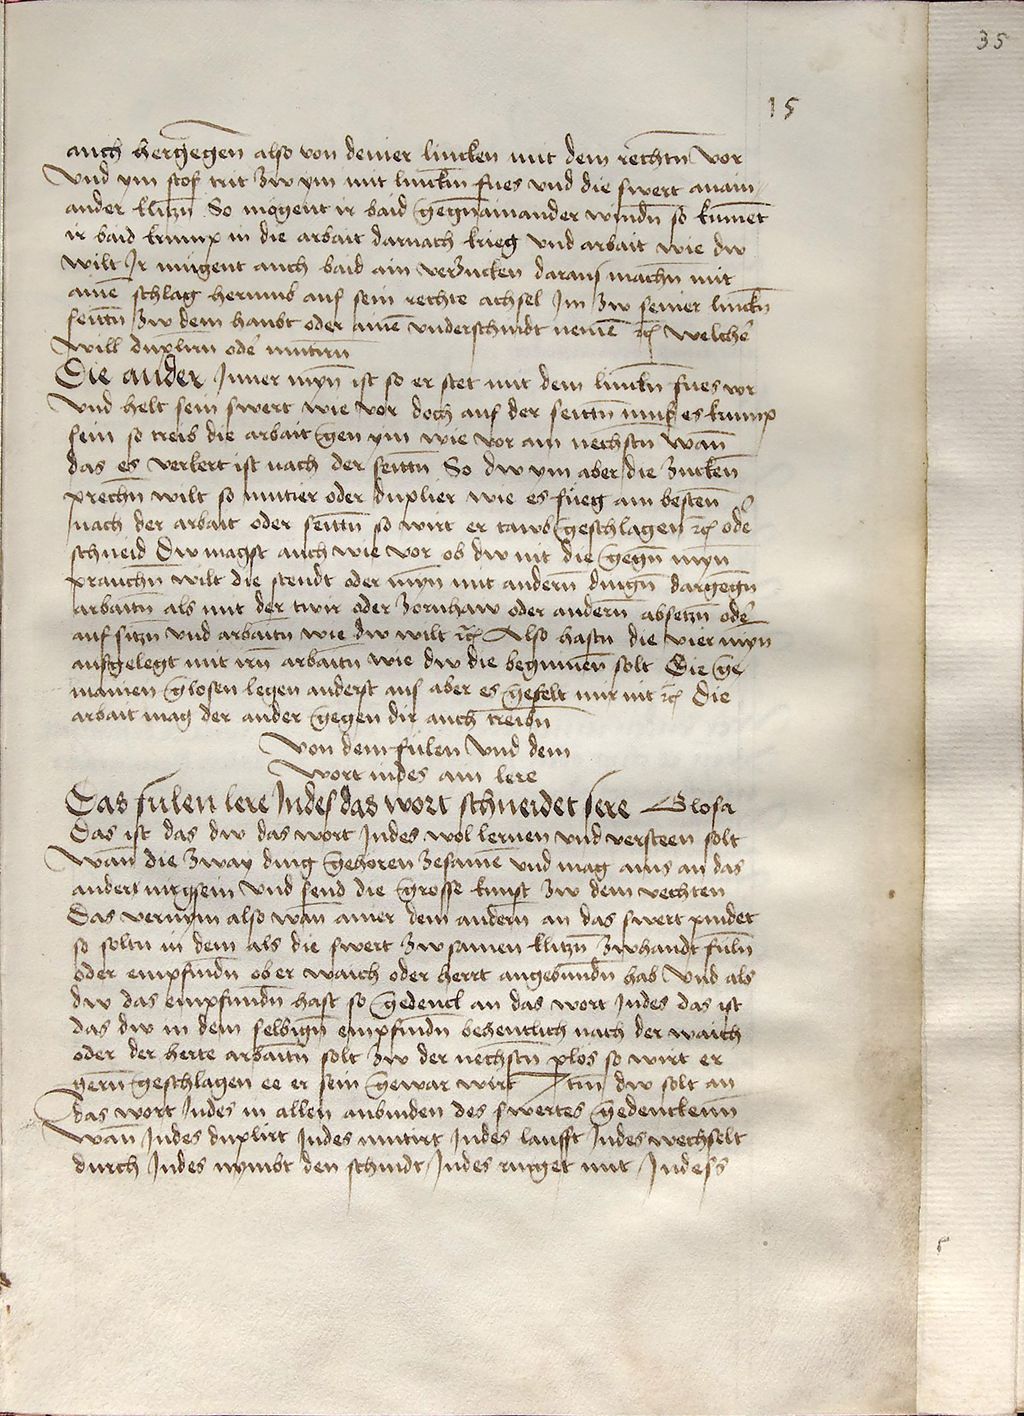 35
15
auch hergegen also von deiner lincken mit dem rechtn vor
Vnd ym stos trit zw ym mit linckm fues vnd die swert anain
ander klitzn So mögent ir baid gegnainander windn so kument
ir baid krump in die arbait darnach krieg vnd arbait wie dw
wilt Ir mügent auch baid ain verzucken daraus machn mit
ainē schlag herumb auf sein rechte achsel Im zw seiner linckn
seittn zw dem haubt oder ainē vnderschnidt nemē rc welchē
will duplirn odē mutirn
Die ander Inner myn ist so er stet mit dem linckn fues vor
Vnd helt sein swert wie vor doch auf der seittn muß es krump
sein so treib die arbait gen ym wie vor am nechstn wān
das es verkert ist nach der seittn So dw ym aber die zuckēn
prechn wilt so mutier oder duplier wie es füeg am bestēn
nach der arbait oder seittn so wirt er tawb geschlagen rc odē
schneid Dw magst auch wie vor ob dw nit die gegn myn
prauchn wilt die stendt oder myn mit andern dingn dargegn
arbaitn als mit der twir oder zornhaw oder andern absetzn odē
auf sitzn vnd arbaitn wie dw wilt rc Also hastu die vier myn
aufgelegt mit irn arbaitn wie dw die beginnen solt Die ge
mainen glosen legen anderst auf aber es gefelt mir nit rc Die
arbait mag der ander gegen dir auch treibn
Von dem fülen Vnd dem
Wort indes ain lere
Das fulen lere Indes das wort schneidet sere Glosa
Das ist das dw das wort Indes wol lernen vnd versteen solt
Wān die zway ding gehoren zesamē vnd mag ains an das
andert nit gsein Vnd send die grosse kunst zw dem vechten
Das vernym also wān ainer dem andern an das swert pindet
so soltu in dem als die swert zwsamen klitzn zwhandt fuln
oder empfindn ob er waich oder herrt angebundn hab Vnd als
dw das empfundn hast so gedenck an das wort Indes das ist
das dw in dem selbign empfindn behentlich nach der waich
oder der herte arbaitn solt zw der nechstn plos so wirt er
gern geschlagen ee er sein gewar wirt Itm dw solt an
das wort Indes in allen anbinden des swertes gedencken
Wān Indes duplirt Indes mutirt Indes laufft Indes wechselt
durch Indes nymbt den schnidt Indes ringet mit Indess